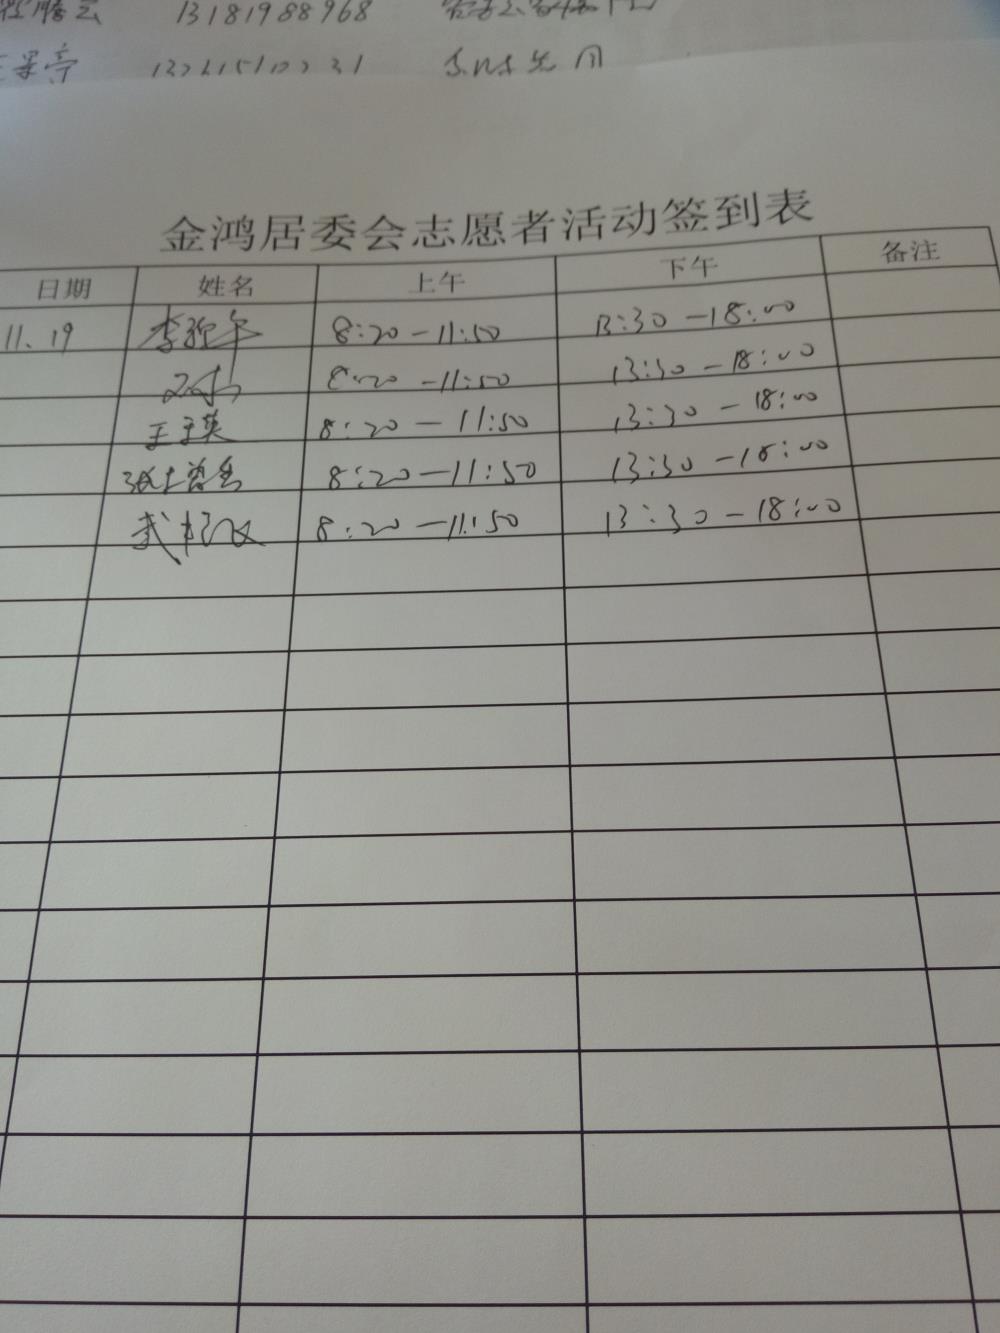 13181988968
金鸿居委会志愿者活动签到表
日期 姓名 上午 下午 备注
11.19 李迎午 8:20-11:50 13:30-18:00
8:20-11:50 13:30-18:00
王子英 8:20-11:50 13:30-18:00
8:20-11:50 13:30-18:00
武 8:20-11:50 13:30-18:00